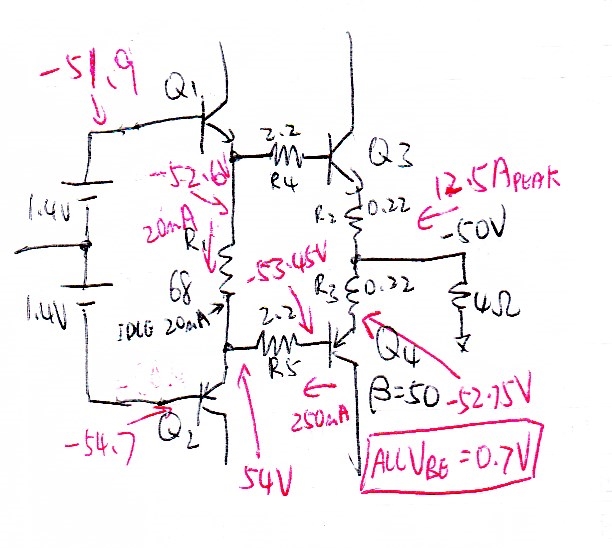 -51.9
Q1
2.2
Q3
R4
-52.6V
12.5A PEAK
1.4V
20mA
R1
R2
0.22
-50V
-53.45V
R3
0.22
68
1.4V
IDLE 20mA
2.2
4Ω
R5
Q4
β=50
-52.75V
250mA
-54.7
Q2
54V
ALL VBE = 0.7V